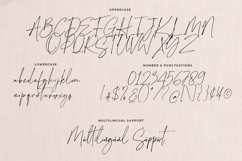 UPPERCASE
ABCDEFGHIJKLMN
OPQRSTUVWXYZ
LOWERCASE
NUMBER & PUNCTUATIONS
abcdefghijklm
nopqrstuvwxyz
0123456789
MULTILINGUAL SUPPORT
Multilingual Support